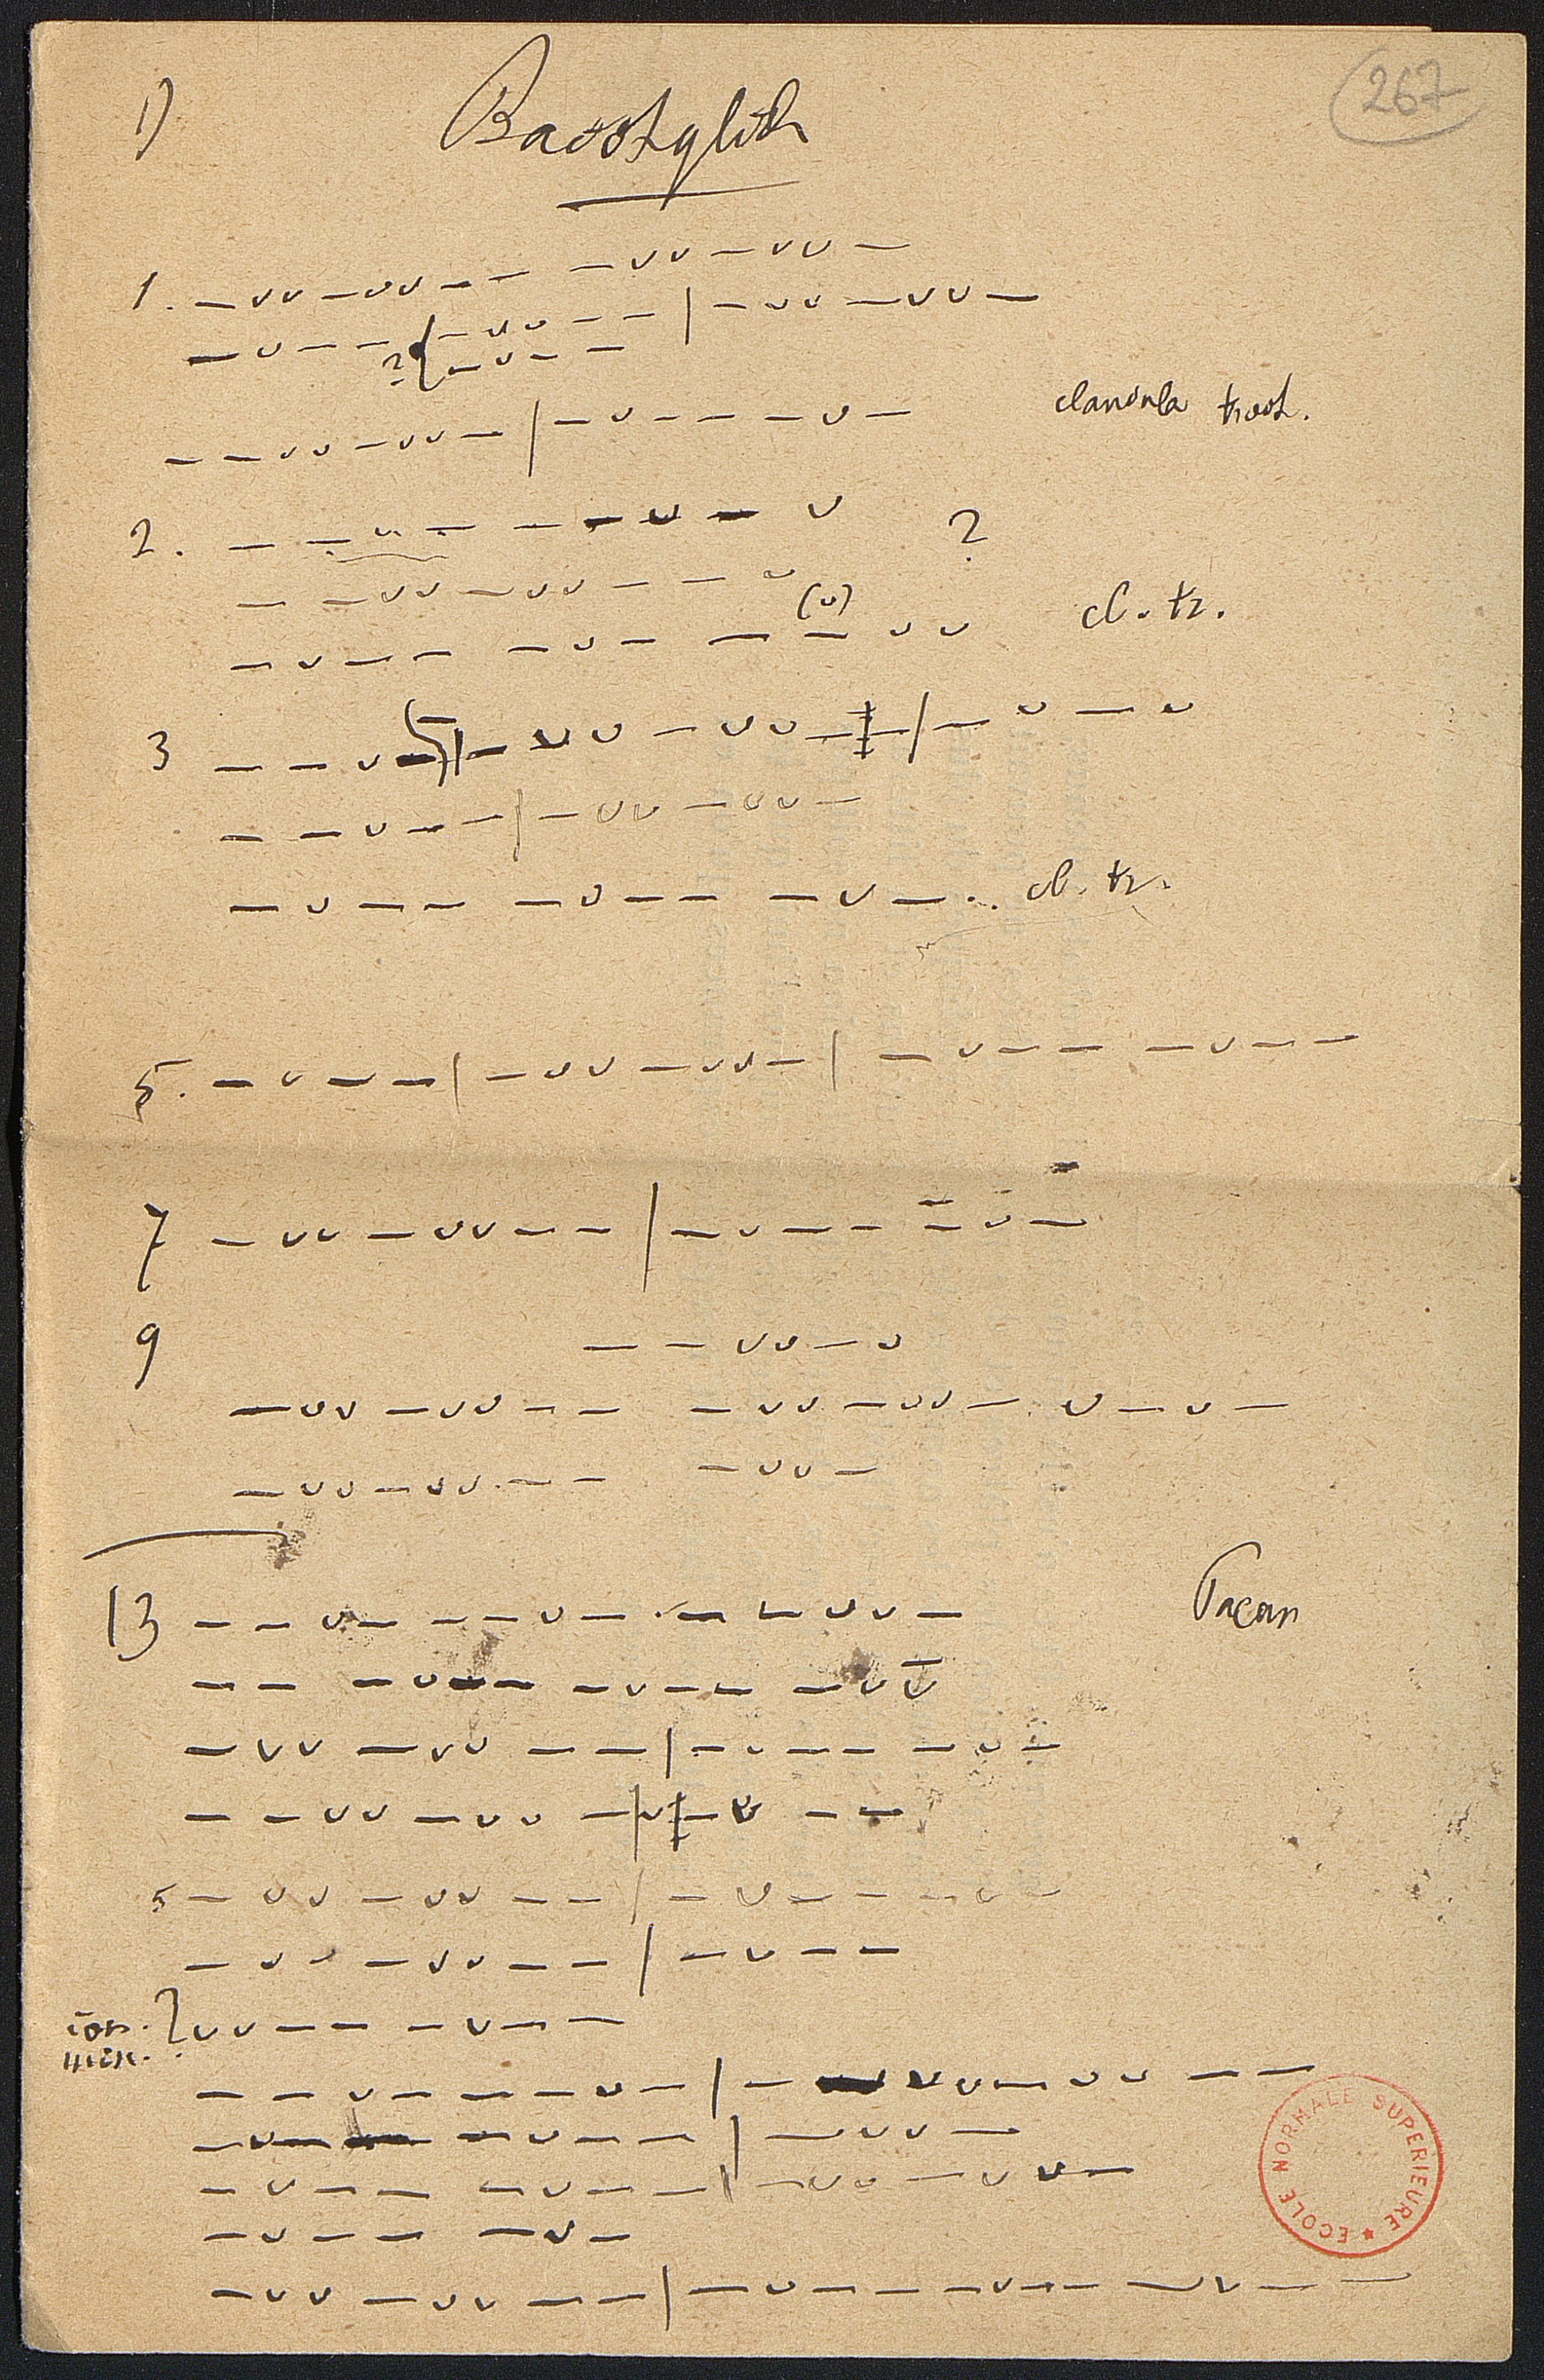 1) Bacchylid 267
1. – ∪ ∪ – ∪ ∪ – – – ∪ ∪ – ∪ ∪ –
– ∪ – – – ∪ ∪ – – | – ∪ ∪ – ∪ ∪ –
? – ∪ – –
– – ∪ ∪ – ∪ ∪ – | – ∪ – – – ∪ – clausula troch.
2. – – ∪ ∪ – – – ∪ – ∪ ?
– – ∪ ∪ – ∪ ∪ – – ∪
– ∪ – – – ∪ – – – (∪) ∪ ∪ cl. tr.
3 – – ∪ – | – ∪ ∪ – ∪ ∪ – – | – ∪ – ∪
– – ∪ – – | – ∪ ∪ – ∪ ∪ –
– ∪ – – – ∪ – – – ∪ – .. cl. tr.
5. – ∪ – – | – ∪ ∪ – ∪ ∪ – | – ∪ – – – ∪ – –
7 – ∪ ∪ – ∪ ∪ – – | – ∪ – – – ∪ –
9 – – ∪ ∪ – ∪
– ∪ ∪ – ∪ ∪ – – – ∪ ∪ – ∪ ∪ – ∪ – ∪ –
– ∪ ∪ – ∪ ∪ – – – ∪ ∪ –
13 – – ∪ – – – ∪ – – – ∪ ∪ – Paean
– – – ∪ – – – ∪ – – – ∪ ∪
– ∪ ∪ – ∪ ∪ – – | – ∪ – – – ∪ –
– – ∪ ∪ – ∪ ∪ – | ∪ | – ∪ – –
5 – ∪ ∪ – ∪ ∪ – – | – ∪ – – – ∪ –
– ∪ ∪ – ∪ ∪ – – | – ∪ – –
ion. min. ? ∪ ∪ – – – ∪ – –
– – ∪ – – – ∪ – | – ∪ ∪ – ∪ ∪ – –
– ∪ – – – ∪ – – | – ∪ ∪ –
– ∪ – – – ∪ – – | – ∪ ∪ – ∪ ∪ –
– ∪ – – – ∪ –
– ∪ ∪ – ∪ ∪ – – | – ∪ – – – ∪ – – – ∪ – –
ECOLE NORMALE SUPERIEURE